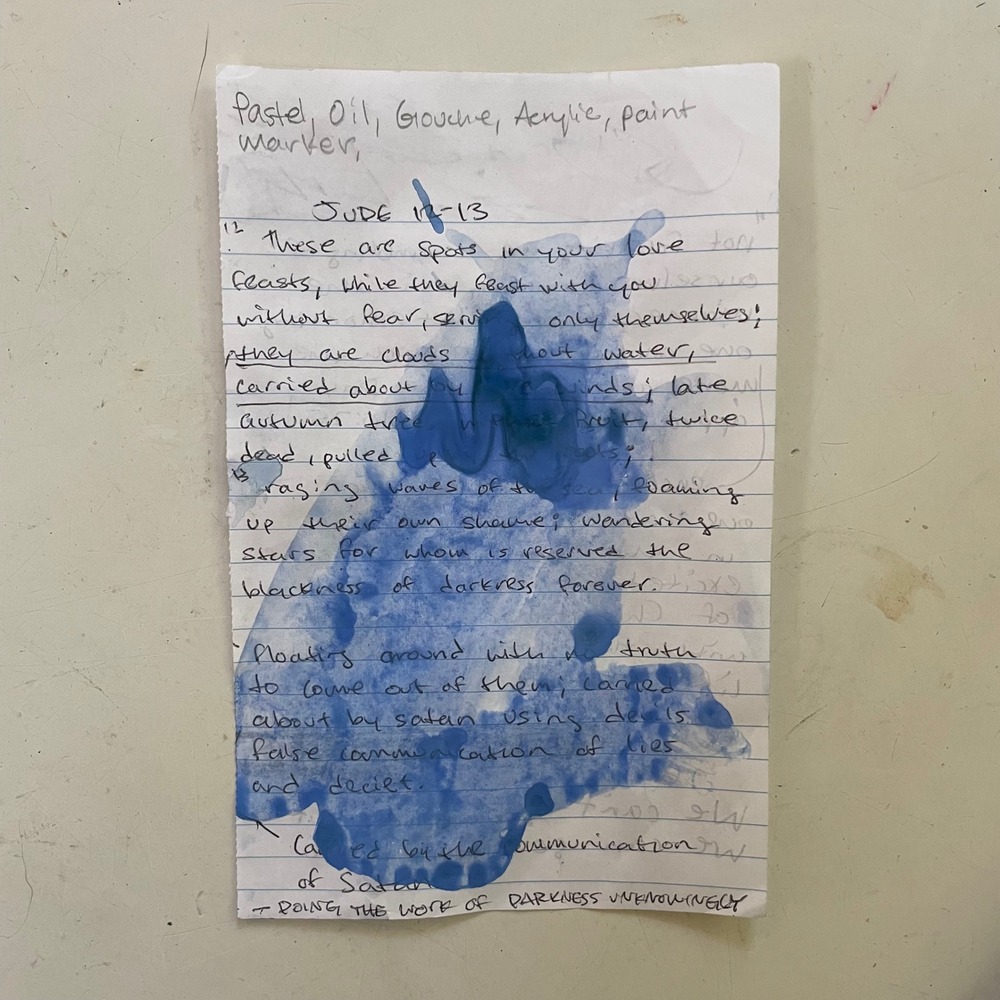 Pastel, Oil, Gouche, Acrylic, paint
Marker,
JUDE 12-13
12 These are spots in your love
feasts, while they feast with you
without fear, only themselves;
they are clouds water,
carried about by winds; late
autumn fruit, twice
dead, pulled
13 raging waves of the sea, foaming
up their own shame; wandering
stars for whom is reserved the
blackness of darkness forever.
floating around with no truth
to come out of them; carried
about by satan using devils
false communication of lies
and deciet.
by the communication
of Satan
- DOING THE WORK OF DARKNESS UNKNOWINGLY